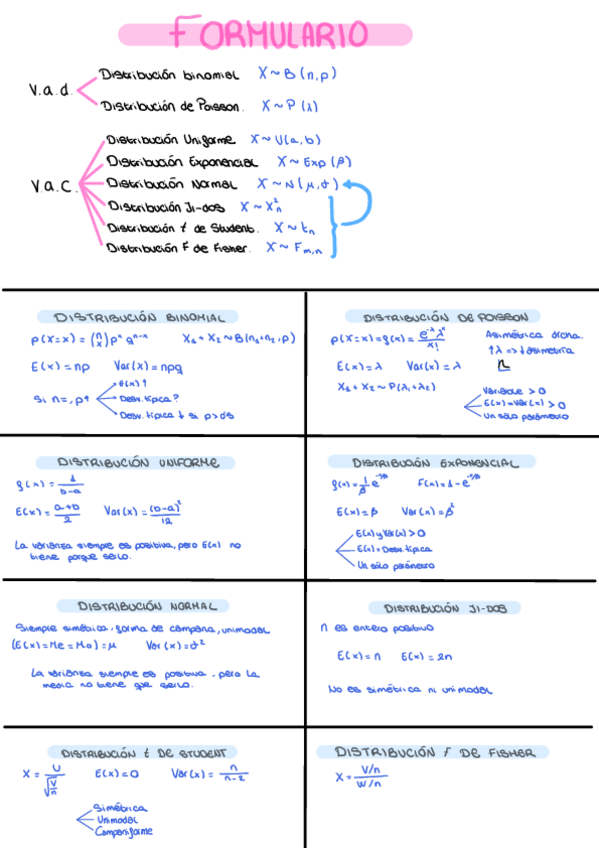 FORMULARIO
v.a.d.
Distribución binomial X ~ B (n, p)
Distribución de Poisson. X ~ P (λ)
v.a.c.
Distribución Uniforme X ~ U(a, b)
Distribución Exponencial X ~ Exp (β)
Distribución Normal X ~ N (μ, σ)
Distribución Ji-dos X ~ X²n
Distribución t de Student. X ~ tn
Distribución F de Fisher. X ~ Fm,n
DISTRIBUCIÓN BINOMIAL
p(X=x) = (n x) pˣ qⁿ⁻ˣ X₁ + X₂ ~ B(n₁+n₂, p)
E(x) = np Var(x) = npq
Si n=, p↑
E(x) ↑
Desv. típica ?
Desv. típica ↓ si p>0'5
DISTRIBUCIÓN DE POISSON
p(X=x) = f(x) = e^-λ λˣ / x! Asimétrica drcha.
↑λ => ↓asimetría
E(x) = λ Var(x) = λ
X₁ + X₂ ~ P(λ₁+λ₂)
Variable > 0
E(x) = Var(x) > 0
Un sólo parámetro
DISTRIBUCIÓN UNIFORME
f(x) = 1 / b-a
E(x) = a+b / 2 Var(x) = (b-a)² / 12
La varianza siempre es positiva, pero E(x) no
tiene porque serlo.
DISTRIBUCIÓN EXPONENCIAL
f(x) = 1/β e^-x/β F(x) = 1 - e^-x/β
E(x) = β Var(x) = β²
E(x) y Var(x) > 0
E(x) = Desv. típica
Un sólo parámetro
DISTRIBUCIÓN NORMAL
Siempre simétrica, forma de campana, unimodal
(E(x) = Me = Mo) = μ Var(x) = σ²
La varianza siempre es positiva, pero la
media no tiene que serlo.
DISTRIBUCIÓN JI-DOS
n es entero positivo
E(x) = n E(x) = 2n
No es simétrica ni unimodal
DISTRIBUCIÓN t DE STUDENT
X = U / √V/n E(x) = 0 Var(x) = n / n-2
Simétrica
Unimodal
Campaniforme
DISTRIBUCIÓN F DE FISHER
X = V/n / W/n